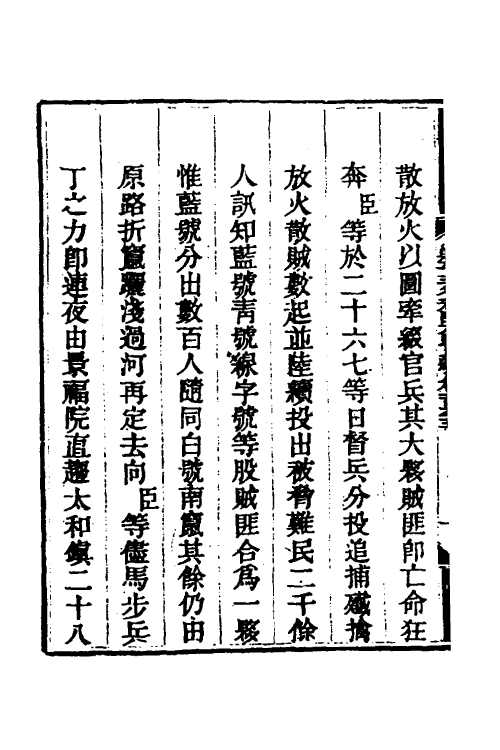 散放火以圖牽綴官兵其大夥賊匪卽亡命狂
奔臣等於二十六七等日督兵分投追捕殲擒
放火散賊數起並陸續投出被脅難民二千餘
人訊知藍號靑號線字號等股賊匪合爲一夥
惟藍號分出數百人隨同白號南竄其餘仍由
原路折竄躧淺過河再定去向臣等儘馬步兵
丁之力卽連夜由景福院直趨太和鎭二十八